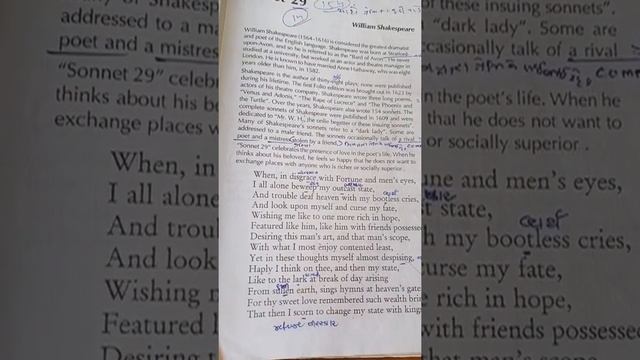 29
William Shakespeare
William Shakespeare (1564-1616) is considered the greatest dramatist
and poet of the English language. Shakespeare was born at Stratford-
upon-Avon, and so he is referred to as the "Bard of Avon". He never
studied at a university, but worked as an actor and theatre manager in
London. He is known to have married Anne Hathaway, who was eight
years older than him, in 1582.
Shakespeare is the author of thirty-eight plays, none were published
during his lifetime. The first Folio edition was brought out in 1623 by
actors of his theatre company. Shakespeare wrote three long poems,
"Venus and Adonis," "The Rape of Lucrece" and "The Phoenix and
the Turtle". Over the years, Shakespeare also wrote 154 sonnets. The
complete sonnets of Shakespeare were published in 1609 and were
dedicated to "Mr. W. H., the onlie begetter of these insuing sonnets".
Many of Shakespeare's sonnets refer to a "dark lady". Some are
addressed to a male friend. The sonnets occasionally talk of a rival
poet and a mistress stolen by a friend.
"Sonnet 29" celebrates the presence of love in the poet's life. When he
thinks about his beloved, he feels so happy that he does not want to
exchange places with anyone who is richer or socially superior.
When, in disgrace with Fortune and men's eyes,
I all alone beweep my outcast state,
And trouble deaf heaven with my bootless cries,
And look upon myself and curse my fate,
Wishing me like to one more rich in hope,
Featured like him, like him with friends possessed
Desiring this man's art, and that man's scope,
With what I most enjoy contented least,
Yet in these thoughts myself almost despising,
Haply I think on thee, and then my state,
Like to the lark at break of day arising
From sullen earth, sings hymns at heaven's gate
For thy sweet love remembered such wealth brin
That then I scorn to change my state with king
refuse